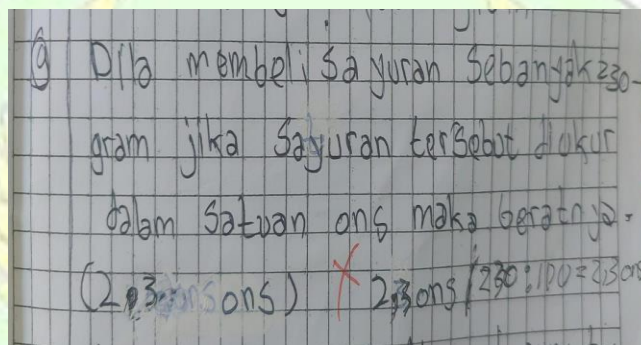 9 Dila membeli sayuran sebanyak 230
gram jika sayuran tersebut diukur
dalam satuan ons maka beratnya.
(2,3 ons) X 2,3 ons / 230 : 100 = 2,30 ons